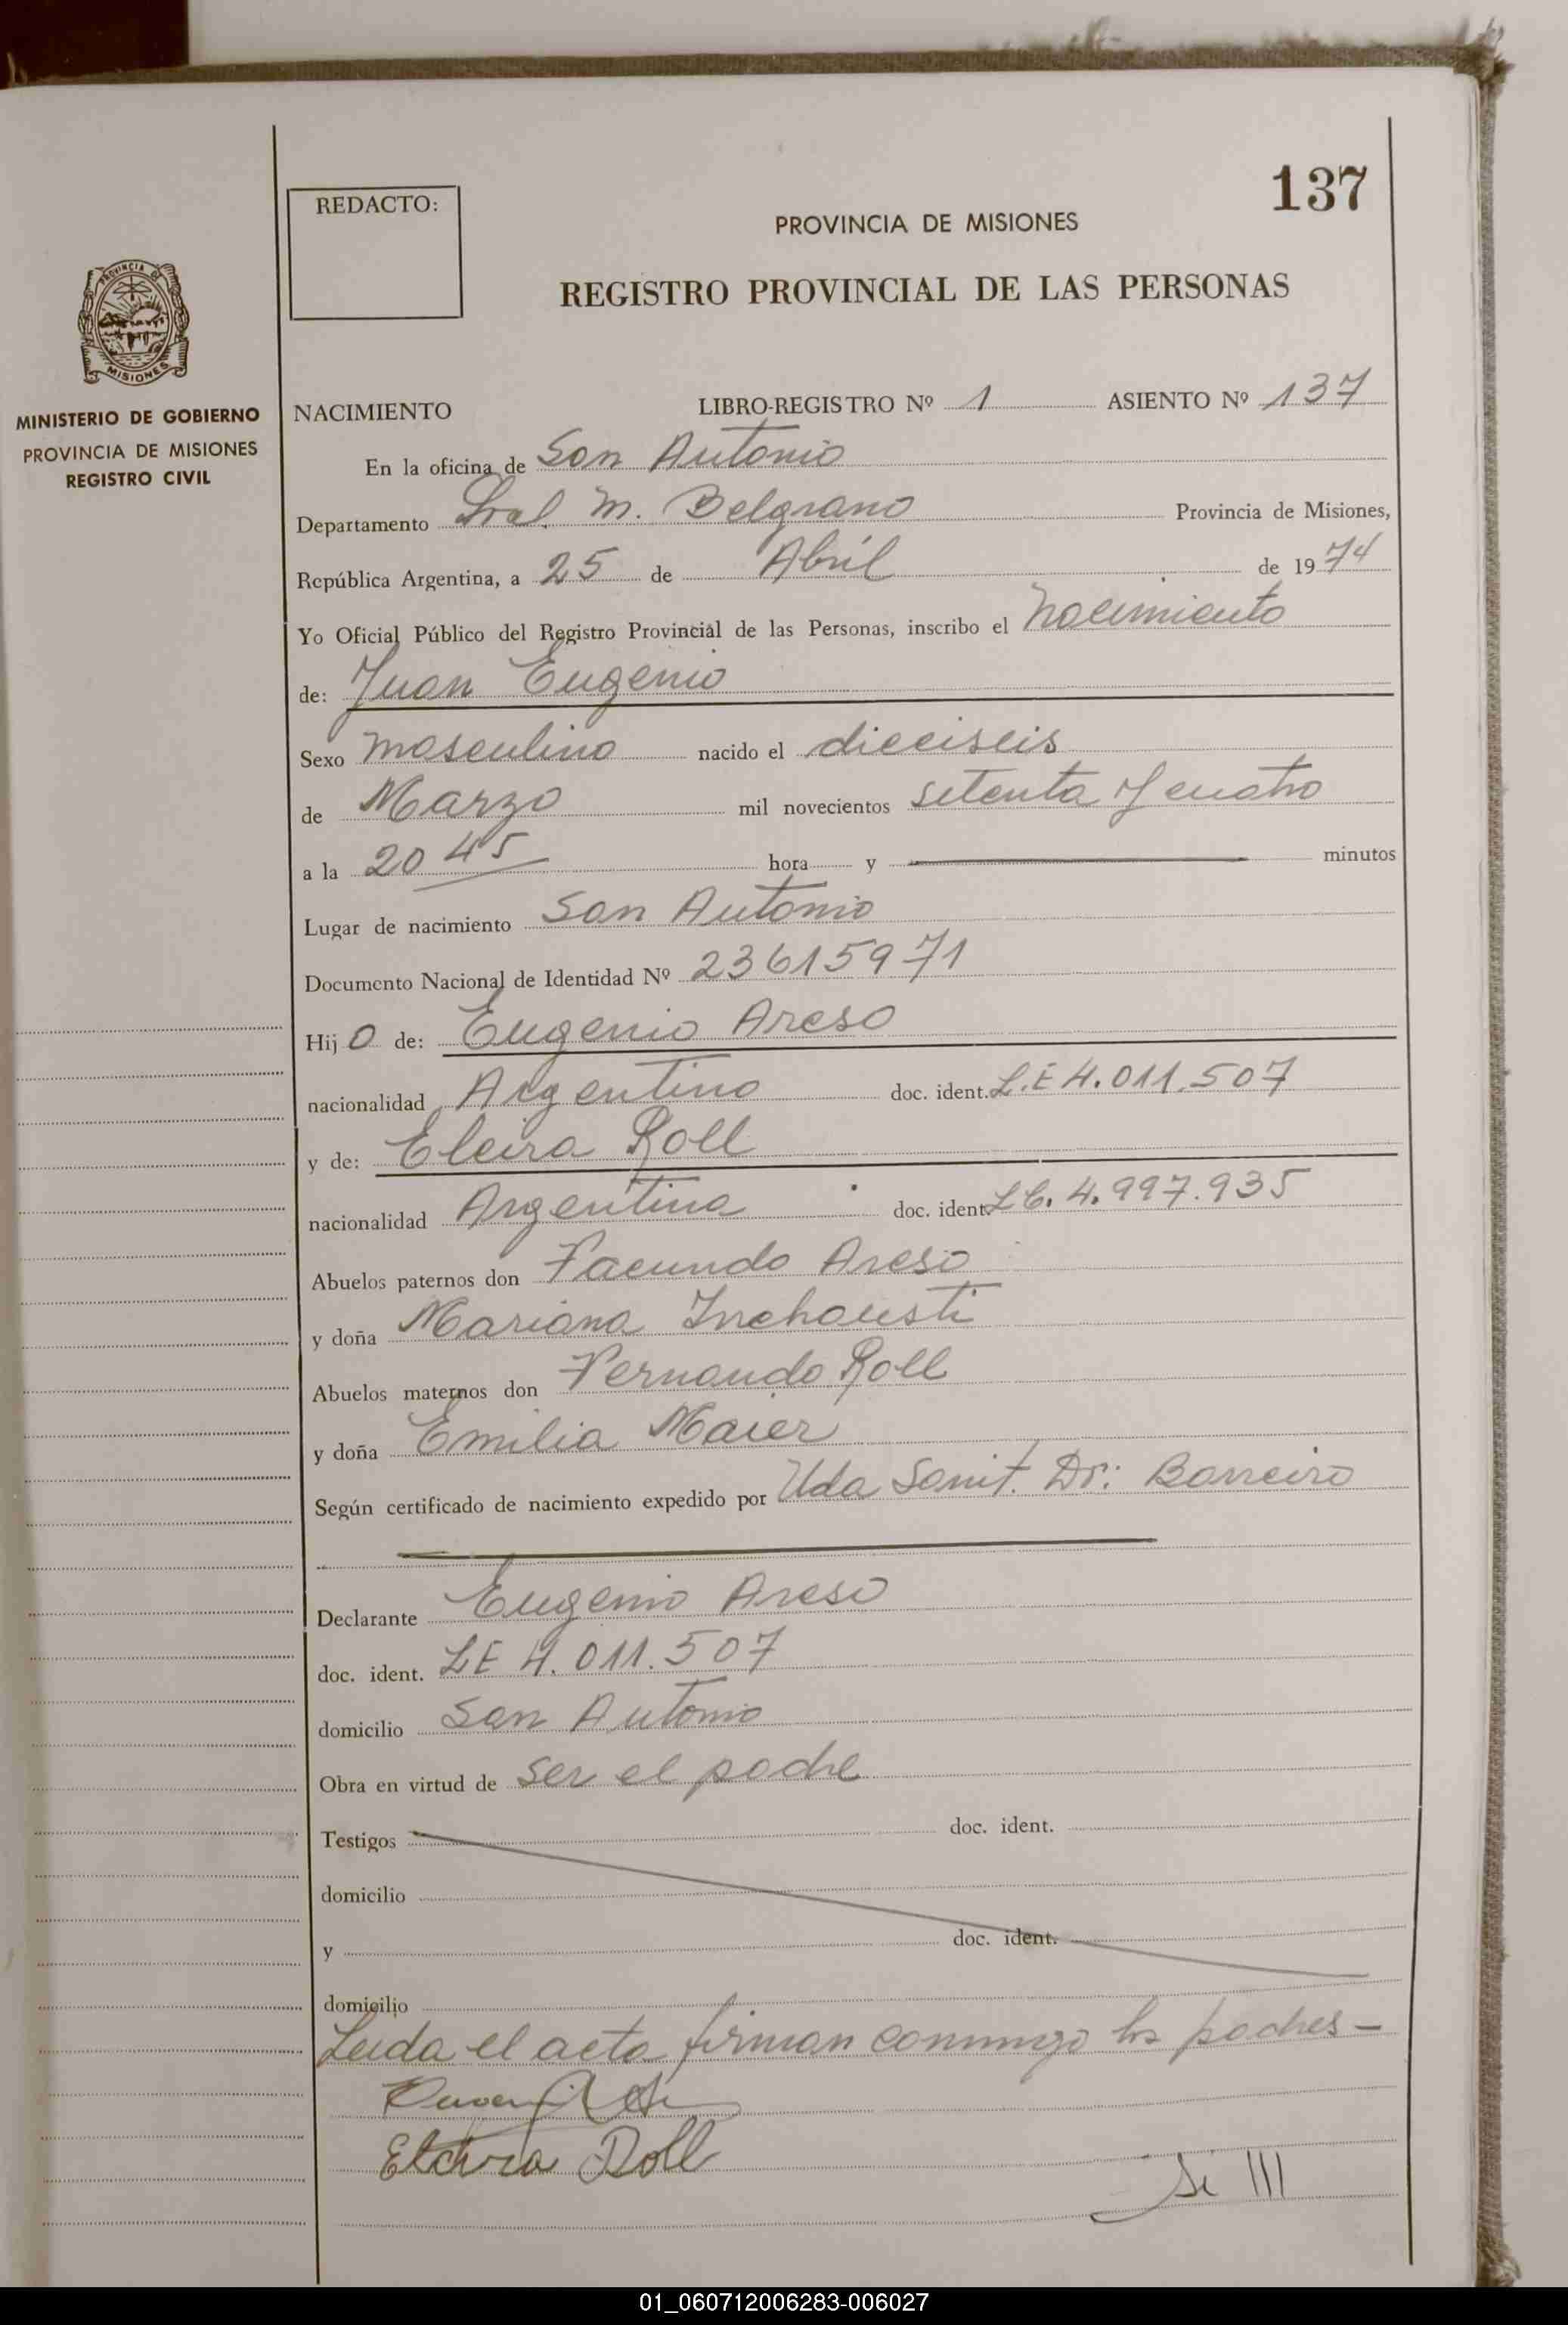 137
REDACTO:
PROVINCIA DE MISIONES
REGISTRO PROVINCIAL DE LAS PERSONAS
PROVINCIA DE
MISIONES
MINISTERIO DE GOBIERNO
PROVINCIA DE MISIONES
REGISTRO CIVIL
NACIMIENTO LIBRO-REGISTRO Nº 1 ASIENTO Nº 137
En la oficina de San Antonio
Departamento Gral. M. Belgrano Provincia de Misiones,
República Argentina, a 25 de Abril de 1974
Yo Oficial Público del Registro Provincial de las Personas, inscribo el nacimiento
de: Juan Eugenio
Sexo masculino nacido el dieciseis
de Marzo mil novecientos setenta y cuatro
a la 20 45 hora y minutos
Lugar de nacimiento San Antonio
Documento Nacional de Identidad Nº 23615971
Hijo de: Eugenio Areso
nacionalidad Argentino doc. ident. L.E 4.011.507
y de: Elcira Roll
nacionalidad Argentina doc. ident. L.C. 4.997.935
Abuelos paternos don Facundo Areso
y doña Mariana Inchausti
Abuelos maternos don Fernando Roll
y doña Emilia Maier
Según certificado de nacimiento expedido por Uda Sanit. Dr: Barreiro
Declarante Eugenio Areso
doc. ident. LE 4.011.507
domicilio San Antonio
Obra en virtud de ser el padre
Testigos doc. ident.
domicilio
y doc. ident.
domicilio
Leida el acta firman conmigo los padres -
Elcira Roll
01_060712006283-006027